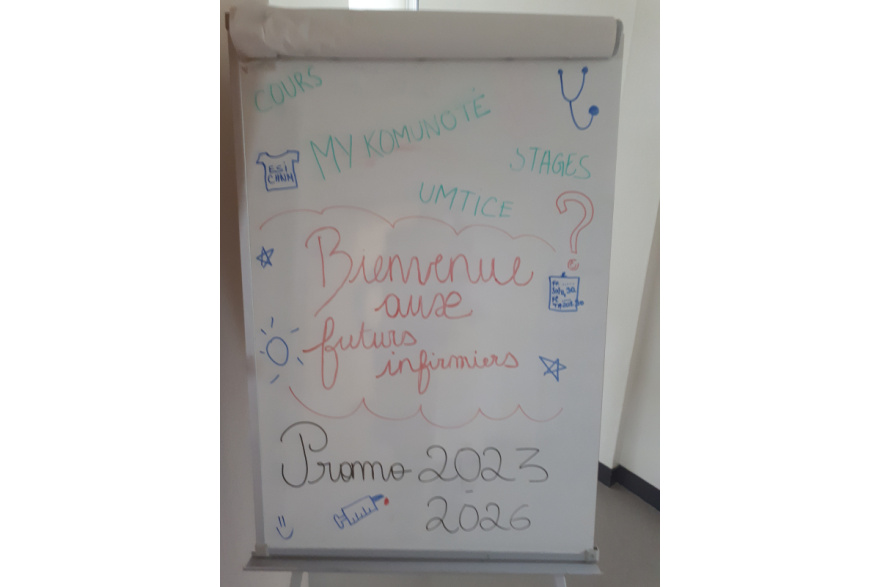 COURS
MY KOMUNOTÉ
ESI
STAGES
UMTICE
?
Bienvenue
aux
futurs
infirmiers
Promo 2023
-
2026